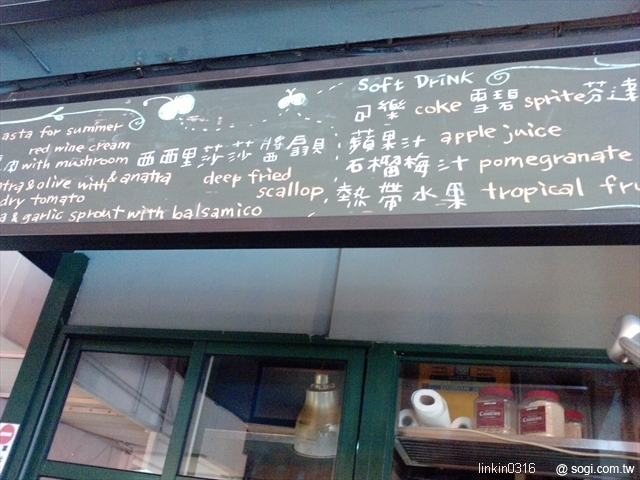 asta for summer
red wine cream
with mushroom
& olive with & anatra
dry tomato
& garlic sprout with balsamico
西西里莎莎醬扇貝
deep fried
scallop
Soft Drink
可樂 coke 雪碧 sprite 芬達
蘋果汁 apple juice
石榴梅汁 pomegranate
熱帶水果 tropical fru
linkin0316 @ sogi.com.tw